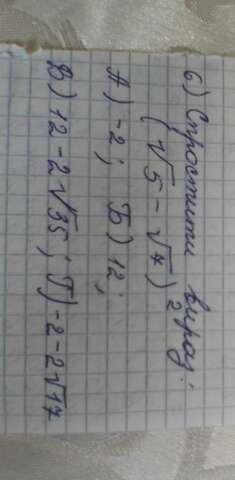 6) Спростити вираз:
(√5 - √7)²
А) -2; Б) 12;
В) 12-2√35; Г) -2-2√17